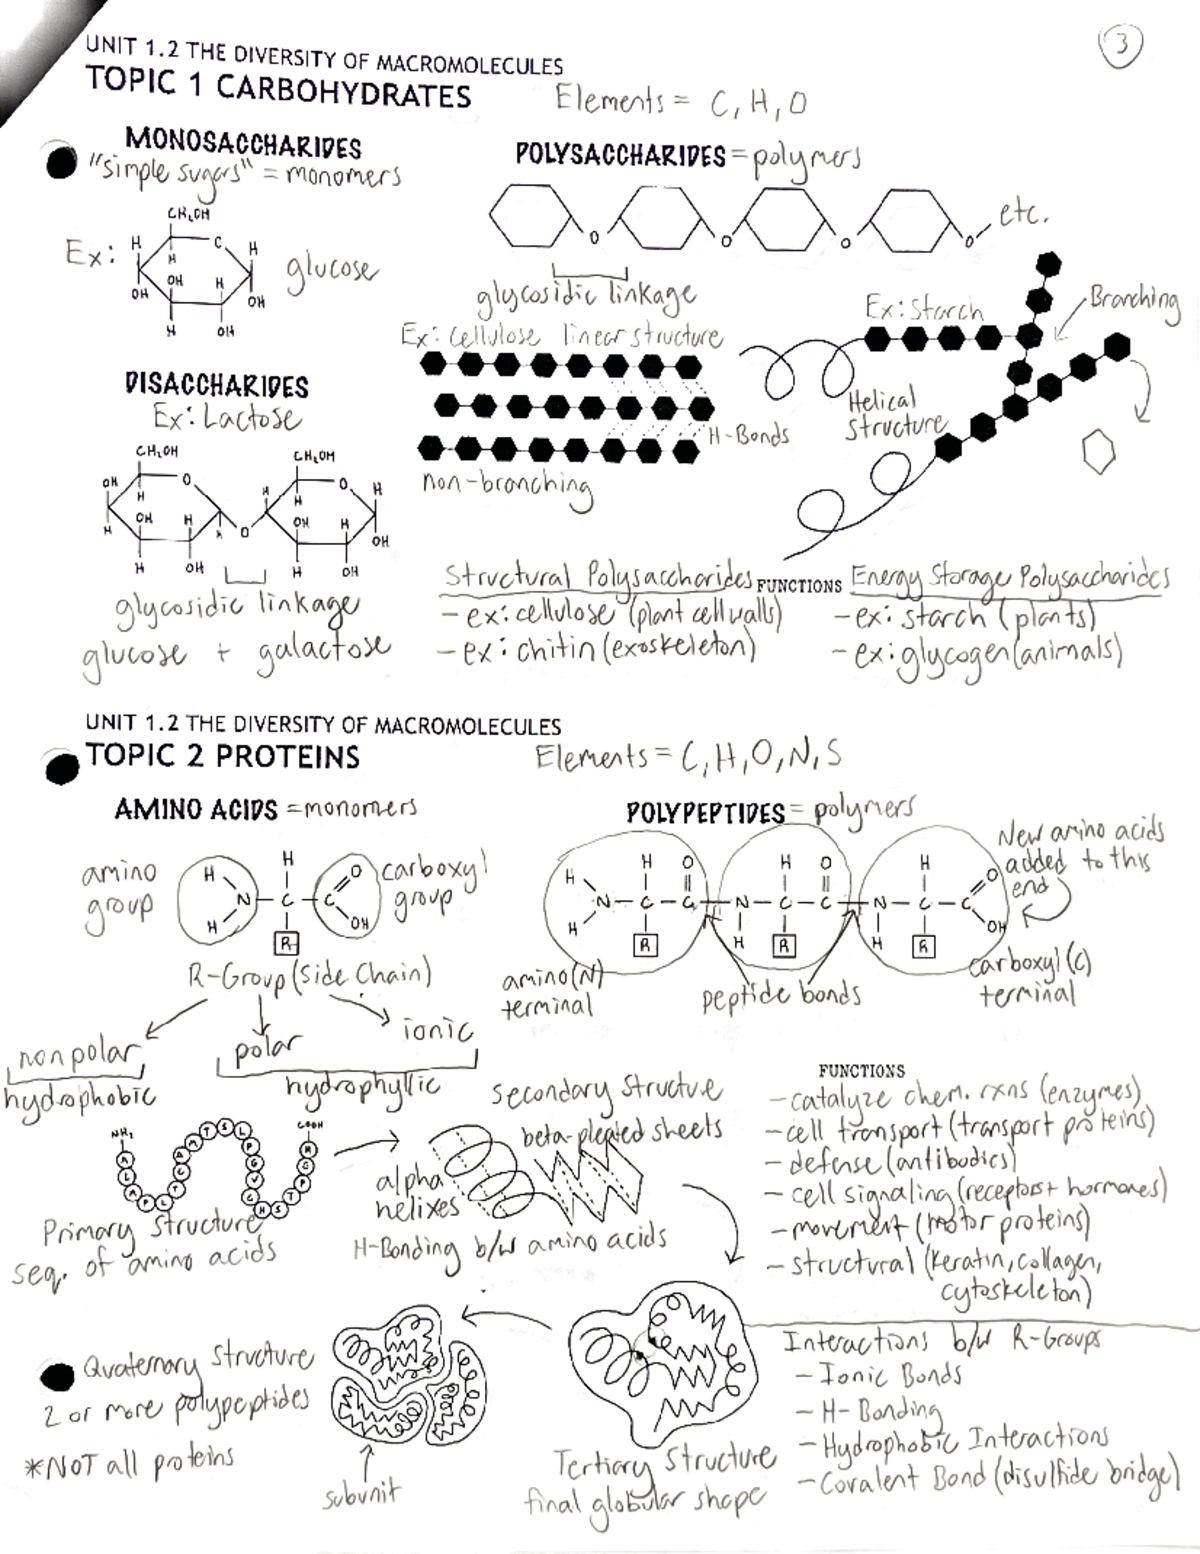 3
UNIT 1.2 THE DIVERSITY OF MACROMOLECULES
TOPIC 1 CARBOHYDRATES
Elements = C, H, O
MONOSACCHARIDES
"simple sugars" = monomers
Ex:
CH₂OH
C
H
H
H
OH
H
OH
OH
H
OH
glucose
POLYSACCHARIDES = polymers
O
O
O
O
etc.
glycosidic linkage
Ex: cellulose linear structure
H-Bonds
non-branching
Ex: starch
Branching
Helical
Structure
DISACCHARIDES
Ex: Lactose
CH₂OH
CH₂OH
OH
O
H
H
O
H
H
H
OH
H
O
OH
H
OH
H
OH
H
OH
glycosidic linkage
glucose + galactose
FUNCTIONS
Structural Polysaccharides
- ex: cellulose (plant cell walls)
- ex: chitin (exoskeleton)
Energy Storage Polysaccharides
- ex: starch (plants)
- ex: glycogen (animals)
UNIT 1.2 THE DIVERSITY OF MACROMOLECULES
TOPIC 2 PROTEINS
Elements = C, H, O, N, S
AMINO ACIDS = monomers
amino
group
H
H
O
N - C - C
H
OH
R
carboxyl
group
R-Group (Side Chain)
nonpolar
polar
ionic
hydrophobic
hydrophyllic
POLYPEPTIDES = polymers
H O H O H
H O
N - C - C - N - C - C - N - C - C
H H H OH
R R R
New amino acids
added to this
end
amino (N)
terminal
peptide bonds
carboxyl (C)
terminal
NH₂
COOH
Primary Structure
seq. of amino acids
secondary structure
beta-pleated sheets
alpha
helixes
H-Bonding b/w amino acids
FUNCTIONS
- catalyze chem. rxns (enzymes)
- cell transport (transport proteins)
- defense (antibodies)
- cell signaling (receptors + hormones)
- movement (motor proteins)
- structural (keratin, collagen,
cytoskeleton)
Quaternary Structure
2 or more polypeptides
*NOT all proteins
subunit
Tertiary Structure
final globular shape
Interactions b/w R-Groups
- Ionic Bonds
- H-Bonding
- Hydrophobic Interactions
- Covalent Bond (disulfide bridge)